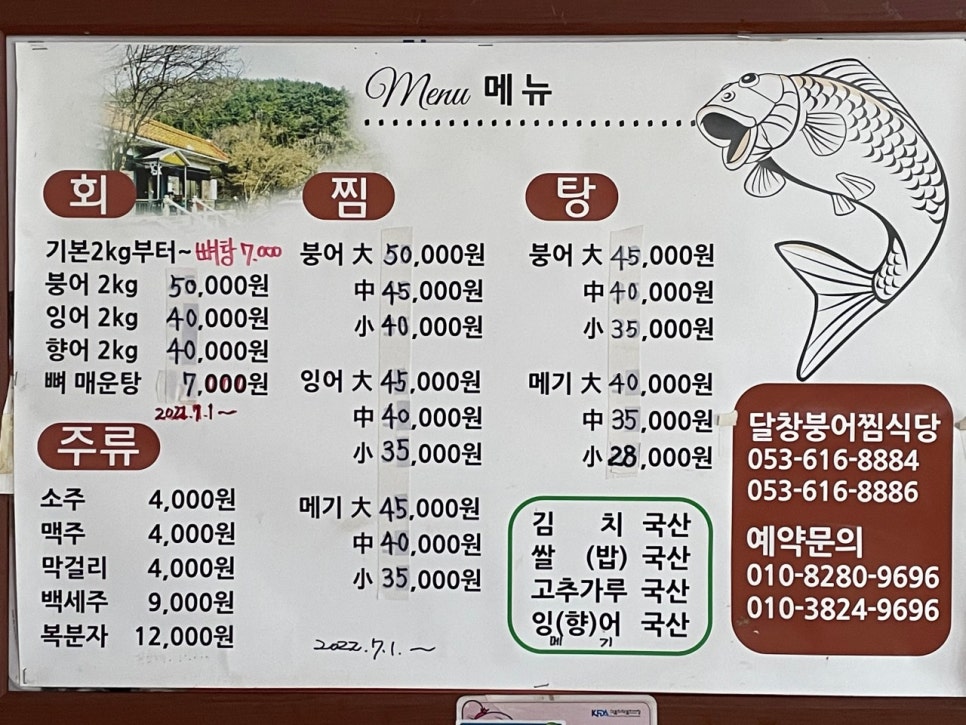 Menu 메뉴
회
기본2kg부터~ 뼈탕 7.000
붕어 2kg 50,000원
잉어 2kg 40,000원
향어 2kg 40,000원
뼈 매운탕 7,000원
2022.7.1~
주류
소주 4,000원
맥주 4,000원
막걸리 4,000원
백세주 9,000원
복분자 12,000원
찜
붕어 大 50,000원
中 45,000원
小 40,000원
잉어 大 45,000원
中 40,000원
小 35,000원
메기 大 45,000원
中 40,000원
小 35,000원
2022.7.1.~
탕
붕어 大 45,000원
中 40,000원
小 35,000원
메기 大 40,000원
中 35,000원
小 28,000원
김 치 국산
쌀 (밥) 국산
고추가루 국산
잉(향)어 국산
메 기
달창붕어찜식당
053-616-8884
053-616-8886
예약문의
010-8280-9696
010-3824-9696